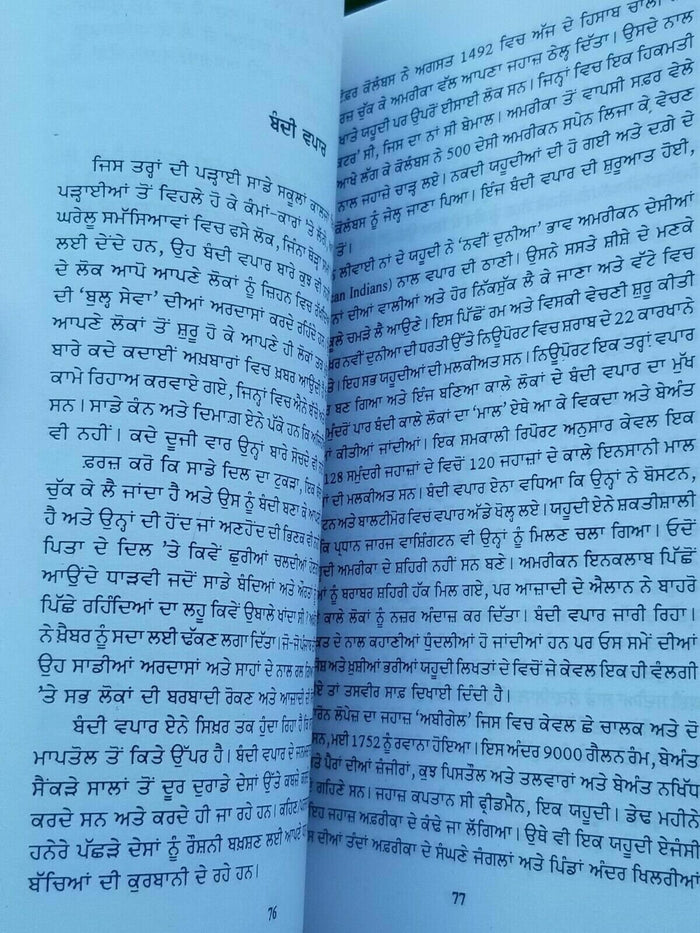 ਬੰਦੀ ਵਪਾਰ
ਜਿਸ ਤਰ੍ਹਾਂ ਦੀ ਪੜ੍ਹਾਈ ਸਾਡੇ ਸਕੂਲਾਂ
ਪੜ੍ਹਾਈਆਂ ਤੋਂ ਵਿਹਲੇ ਹੋ ਕੇ ਕੰਮਾਂ-ਕਾਰਾਂ 'ਤੇ
ਘਰੇਲੂ ਸਮੱਸਿਆਵਾਂ ਵਿਚ ਫਸੇ ਲੋਕ, ਜਿਨਾਂ
ਲਈ ਦੇਂਦੇ ਹਨ, ਉਹ ਬੰਦੀ ਵਪਾਰ ਬਾਰੇ ਕੁਝ ਵੀ
ਦੇ ਲੋਕ ਆਪੋ ਆਪਣੇ ਲੋਕਾਂ ਨੂੰ ਜ਼ਿਹਨ ਵਿਚ
ਦੀ 'ਬੁਲ੍ਹ ਸੇਵਾ' ਦੀਆਂ ਅਰਦਾਸਾਂ ਕਰਦੇ ਰਹਿੰਦੇ
ਆਪਣੇ ਲੋਕਾਂ ਤੋਂ ਸ਼ੁਰੂ ਹੋ ਕੇ ਆਪਣੇ ਹੀ ਲੋਕਾਂ
ਬਾਰੇ ਕਦੇ ਕਦਾਈਂ ਅਖ਼ਬਾਰਾਂ ਵਿਚ ਖ਼ਬਰ ਆਉਂਦੀ
ਕਾਮੇ ਰਿਹਾਅ ਕਰਵਾਏ ਗਏ, ਜਿਨ੍ਹਾਂ ਵਿਚ ਐਨੇ
ਸਨ। ਸਾਡੇ ਕੰਨ ਅਤੇ ਦਿਮਾਗ਼ ਏਨੇ ਪੱਕੇ ਹਨ ਕਿ
ਵੀ ਨਹੀਂ। ਕਦੇ ਦੂਜੀ ਵਾਰ ਉਨ੍ਹਾਂ ਬਾਰੇ ਸੋਚਦੇ ਵੀ
ਫ਼ਰਜ਼ ਕਰੋ ਕਿ ਸਾਡੇ ਦਿਲ ਦਾ ਟੁਕੜਾ,
ਚੁੱਕ ਕੇ ਲੈ ਜਾਂਦਾ ਹੈ ਅਤੇ ਉਸ ਨੂੰ ਬੰਦੀ ਬਣਾ ਕੇ
ਹੈ ਅਤੇ ਉਨ੍ਹਾਂ ਦੀ ਹੋਂਦ ਜਾਂ ਅਣਹੋਂਦ ਦੀ ਭਿਣਕ ਵੀ
ਪਿਤਾ ਦੇ ਦਿਲ 'ਤੇ ਕਿਵੇਂ ਛੁਰੀਆਂ ਚਲਦੀਆਂ
ਆਉਂਦੇ ਧਾੜਵੀ ਜਦੋਂ ਸਾਡੇ ਬੰਦਿਆਂ ਅਤੇ
ਪਿੱਛੇ ਰਹਿੰਦਿਆਂ ਦਾ ਲਹੂ ਕਿਵੇਂ ਉਬਾਲੇ ਖਾਂਦਾ ਸੀ
ਨੇ ਖ਼ੈਬਰ ਨੂੰ ਸਦਾ ਲਈ ਢੱਕਣ ਲਗਾ ਦਿੱਤਾ। ਜੋ-ਜੋ
ਉਹ ਸਾਡੀਆਂ ਅਰਦਾਸਾਂ ਅਤੇ ਸਾਹਾਂ ਦੇ ਨਾਲ
'ਤੇ ਸਭ ਲੋਕਾਂ ਦੀ ਬਰਬਾਦੀ ਰੋਕਣ ਅਤੇ ਆਜ਼ਾਦੀ ਦੀ
ਬੰਦੀ ਵਪਾਰ ਏਨੇ ਸਿਖ਼ਰ ਤਕ ਹੁੰਦਾ ਰਿਹਾ ਹੈ ਕਿ
ਮਾਪਤੋਲ ਤੋਂ ਕਿਤੇ ਉੱਪਰ ਹੈ। ਬੰਦੀ ਵਪਾਰ ਦੇ
ਸੈਂਕੜੇ ਸਾਲਾਂ ਤੋਂ ਦੂਰ ਦੁਰਾਡੇ ਦੇਸਾਂ ਉੱਤੇ ਕਬਜ਼ੇ
ਕਰਦੇ ਸਨ ਅਤੇ ਕਰਦੇ ਹੀ ਜਾ ਰਹੇ ਹਨ। ਕਹਿਣ
ਹਨੇਰੇ ਪੱਛੜੇ ਦੇਸਾਂ ਨੂੰ ਰੌਸ਼ਨੀ ਬਖ਼ਸ਼ਣ ਲਈ ਆਪਣੇ
ਬੱਚਿਆਂ ਦੀ ਕੁਰਬਾਨੀ ਦੇ ਰਹੇ ਹਨ।
76
ਕੋਲੰਬਸ ਨੇ ਅਗਸਤ 1492 ਵਿਚ ਅੱਜ ਦੇ ਹਿਸਾਬ
ਚੁੱਕ ਕੇ ਅਮਰੀਕਾ ਵੱਲ ਆਪਣਾ ਜਹਾਜ਼ ਠੇਲ੍ਹ ਦਿੱਤਾ। ਉਸਦੇ ਨਾਲ
ਯਹੂਦੀ ਪਰ ਉਪਰੋਂ ਈਸਾਈ ਲੋਕ ਸਨ। ਜਿਨ੍ਹਾਂ ਵਿਚ ਇਕ ਹਿਕਮਤੀ
ਸੀ, ਜਿਸ ਦਾ ਨਾਂ ਸੀ ਬੇਮਾਲ। ਅਮਰੀਕਾ ਤੋਂ ਵਾਪਸੀ ਸਫ਼ਰ ਵੇਲੇ
ਆਖੇ ਲੱਗ ਕੇ ਕੋਲੰਬਸ ਨੇ 500 ਦੇਸੀ ਅਮਰੀਕਨ ਸਪੇਨ ਲਿਜਾ ਕੇ ਵੇਚਣ
ਨਾਲ ਜਹਾਜ਼ੇ ਚਾੜ੍ਹ ਲਏ। ਨਕਦੀ ਯਹੂਦੀਆਂ ਦੀ ਹੋ ਗਈ ਅਤੇ ਦਗ਼ੇ ਦੇ
ਕੋਲੰਬਸ ਨੂੰ ਜੇਲ੍ਹ ਜਾਣਾ ਪਿਆ। ਇੰਜ ਬੰਦੀ ਵਪਾਰ ਦੀ ਸ਼ੁਰੂਆਤ ਹੋਈ,
ਤੋਂ।
ਲੀਵਾਈ ਨਾਂ ਦੇ ਯਹੂਦੀ ਨੇ 'ਨਵੀਂ ਦੁਨੀਆ' ਭਾਵ ਅਮਰੀਕਨ ਦੇਸੀਆਂ
Indians) ਨਾਲ ਵਪਾਰ ਦੀ ਠਾਣੀ। ਉਸਨੇ ਸਸਤੇ ਸ਼ੀਸ਼ੇ ਦੇ ਮਣਕੇ
ਦੀਆਂ ਵਾਲੀਆਂ ਅਤੇ ਹੋਰ ਨਿੱਕਸੁੱਕ ਲੈ ਕੇ ਜਾਣਾ ਅਤੇ ਵੱਟੇ ਵਿਚ
ਚਮੜੇ ਲੈ ਆਉਣੇ। ਇਸ ਪਿੱਛੋਂ ਰਮ ਅਤੇ ਵਿਸਕੀ ਵੇਚਣੀ ਸ਼ੁਰੂ ਕੀਤੀ
ਨਵੀਂ ਦੁਨੀਆ ਦੀ ਧਰਤੀ ਉੱਤੇ ਨਿਊਪੋਰਟ ਵਿਚ ਸ਼ਰਾਬ ਦੇ 22 ਕਾਰਖਾਨੇ
ਇਹ ਸਭ ਯਹੂਦੀਆਂ ਦੀ ਮਲਕੀਅਤ ਸਨ। ਨਿਊਪੋਰਟ ਇਕ ਤਰ੍ਹਾਂ ਵਪਾਰ
ਬਣ ਗਿਆ ਅਤੇ ਇੰਜ ਬਣਿਆ ਕਾਲੇ ਲੋਕਾਂ ਦੇ ਬੰਦੀ ਵਪਾਰ ਦਾ ਮੁੱਖ
ਪਾਰ ਬੰਦੀ ਕਾਲੇ ਲੋਕਾਂ ਦਾ 'ਮਾਲ' ਏਥੇ ਆ ਕੇ ਵਿਕਦਾ ਅਤੇ ਬੇਅੰਤ
ਕੀਤੀਆਂ ਜਾਂਦੀਆਂ। ਇਕ ਸਮਕਾਲੀ ਰਿਪੋਰਟ ਅਨੁਸਾਰ ਕੇਵਲ ਇਕ
128 ਸਮੁੰਦਰੀ ਜਹਾਜ਼ਾਂ ਦੇ ਵਿਚੋਂ 120 ਜਹਾਜ਼ਾਂ ਦੇ ਕਾਲੇ ਇਨਸਾਨੀ ਮਾਲ
ਦੀ ਮਲਕੀਅਤ ਸਨ। ਬੰਦੀ ਵਪਾਰ ਏਨਾ ਵਧਿਆ ਕਿ ਉਨ੍ਹਾਂ ਨੇ ਬੋਸਟਨ,
ਅਤੇ ਬਾਲਟੀਮੋਰ ਵਿਚ ਵਪਾਰ ਅੱਡੇ ਖੋਲ੍ਹ ਲਏ। ਯਹੂਦੀ ਏਨੇ ਸ਼ਕਤੀਸ਼ਾਲੀ
ਕਿ ਪ੍ਰਧਾਨ ਜਾਰਜ ਵਾਸ਼ਿੰਗਟਨ ਵੀ ਉਨ੍ਹਾਂ ਨੂੰ ਮਿਲਣ ਚਲਾ ਗਿਆ। ਓਦੋਂ
ਅਮਰੀਕਾ ਦੇ ਸ਼ਹਿਰੀ ਨਹੀਂ ਸਨ ਬਣੇ। ਅਮਰੀਕਨ ਇਨਕਲਾਬ ਪਿੱਛੋਂ
ਨੂੰ ਬਰਾਬਰ ਸ਼ਹਿਰੀ ਹੱਕ ਮਿਲ ਗਏ, ਪਰ ਆਜ਼ਾਦੀ ਦੇ ਐਲਾਨ ਨੇ ਬਾਹਰੋਂ
ਕਾਲੇ ਲੋਕਾਂ ਨੂੰ ਨਜ਼ਰ ਅੰਦਾਜ਼ ਕਰ ਦਿੱਤਾ। ਬੰਦੀ ਵਪਾਰ ਜਾਰੀ ਰਿਹਾ।
ਦੇ ਨਾਲ ਕਹਾਣੀਆਂ ਧੁੰਦਲੀਆਂ ਹੋ ਜਾਂਦੀਆਂ ਹਨ ਪਰ ਓਸ ਸਮੇਂ ਦੀਆਂ
ਅਤੇ ਖ਼ੁਸ਼ੀਆਂ ਭਰੀਆਂ ਯਹੂਦੀ ਲਿਖਤਾਂ ਦੇ ਵਿਚੋਂ ਜੇ ਕੇਵਲ ਇਕ ਹੀ ਵੰਲਗੀ
ਤਾਂ ਤਸਵੀਰ ਸਾਫ਼ ਦਿਖਾਈ ਦਿੰਦੀ ਹੈ।
ਲੋਪੇਜ਼ ਦਾ ਜਹਾਜ਼ 'ਅਬੀਗੇਲ' ਜਿਸ ਵਿਚ ਕੇਵਲ ਛੇ ਚਾਲਕ ਅਤੇ ਦੋ
ਸਨ, ਮਈ 1752 ਨੂੰ ਰਵਾਨਾ ਹੋਇਆ। ਇਸ ਅੰਦਰ 9000 ਗੈਲਨ ਰੰਮ, ਬੇਅੰਤ
ਪੈਰਾਂ ਦੀਆਂ ਜ਼ੰਜੀਰਾਂ, ਕੁਝ ਪਿਸਤੌਲ ਅਤੇ ਤਲਵਾਰਾਂ ਅਤੇ ਬੇਅੰਤ ਨਖਿੱਧ
ਗਹਿਣੇ ਸਨ। ਜਹਾਜ਼ ਕਪਤਾਨ ਸੀ ਫ੍ਰੀਡਮੈਨ, ਇਕ ਯਹੂਦੀ। ਡੇਢ ਮਹੀਨੇ
ਇਹ ਜਹਾਜ਼ ਅਫ਼ਰੀਕਾ ਦੇ ਕੰਢੇ ਜਾ ਲੱਗਿਆ। ਉਥੇ ਵੀ ਇਕ ਯਹੂਦੀ ਏਜੰਸੀ
ਦੀਆਂ ਤੰਦਾਂ ਅਫ਼ਰੀਕਾ ਦੇ ਸੰਘਣੇ ਜੰਗਲਾਂ ਅਤੇ ਪਿੰਡਾਂ ਅੰਦਰ ਖਿਲਰੀਆਂ
77